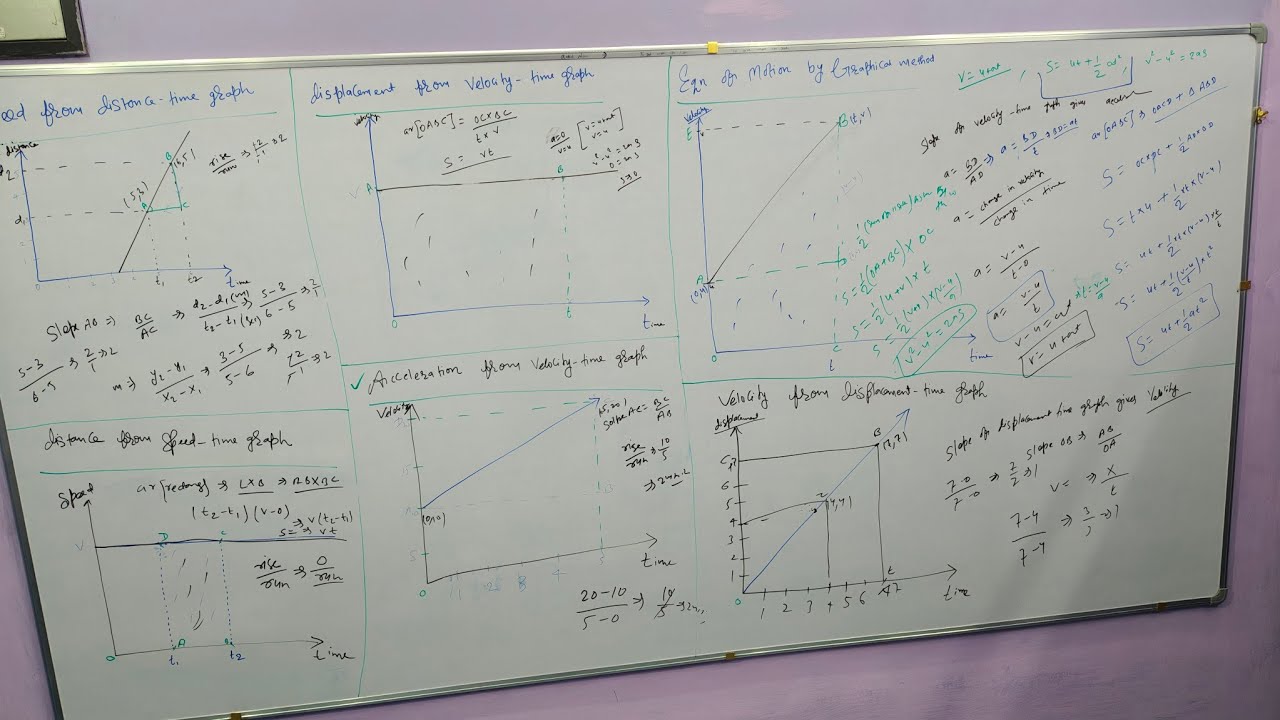 eed from distance-time graph
distance
d2
d1
(5,3)
A
B
C
(6,5)
rise/run ⇒ 2/1 ⇒ 2
0
1
2
3
t1
t2
time
Slope AB ⇒ BC/AC ⇒ d2-d1/t2-t1 ⇒ 5-3/6-5 ⇒ 2/1
5-3/6-5 ⇒ 2/1 ⇒ 2
m ⇒ y2-y1/x2-x1 ⇒ 3-5/5-6 ⇒ 2
-2/-1 ⇒ 2
distance from Speed-time graph
Speed
ar[rectang] ⇒ L×B ⇒ AB×BC
(t2-t1)(v-0)
⇒ v(t2-t1)
s= ⇒ vt
V
D
C
rise/run ⇒ 0/run
0
A
B
t1
t2
time
displacement from Velocity-time graph
velocity
ar[OABC] = OC×BC
t×v
S = vt
a=0
v=u
[v=u+at
v=u]
v²-u²=2as
0=2as
s=0
V
A
B
0
t
time
✓ Acceleration from Velocity-time graph
Velocity
(5,20)
Solpe AC = BC/AB
rise/run ⇒ 10/5
(0,10)
5
0
time
20-10/5-0 ⇒ 10/5
Eqn of Motion by Graphical method
v=u+at , S= ut+1/2at², v²-u²=2as
velocity
E
B(t,v)
A
(0,u)
0
t
C
time
Slope of velocity-time graph gives acceln
a= BD/AD ⇒ a= BD/t ⇒ BD=at
a= change in velocity/change in time
a= v-u/t-0
a= v-u/t
v-u=at
v=u+at
S= 1/2(OA+BC)×OC
S= 1/2(u+v)×t
S= 1/2(v+u)×(v-u/a)
v²-u²=2as
t= v-u/a
ar[OABC] ⇒ OACD + ΔABD
S= OC×OC+1/2AD×BD
S= t×u+1/2×t×(v-u)
S= ut+1/2×t×(v-u)×t/t
S= ut+1/2(v-u/t)×t²
S= ut+1/2at²
Velocity from displacement-time graph
displacement
B
(7,7)
(4,4)
C,7
6
5
4
3
2
1
0
1 2 3 4 5 6 A7
t
time
Slope of displacement time graph gives Velocity
7-0/7-0 ⇒ 7/7 ⇒ 1
slope OB ⇒ AB/OA
V= ⇒ x/t
7-4/7-4 ⇒ 3/3 ⇒ 1